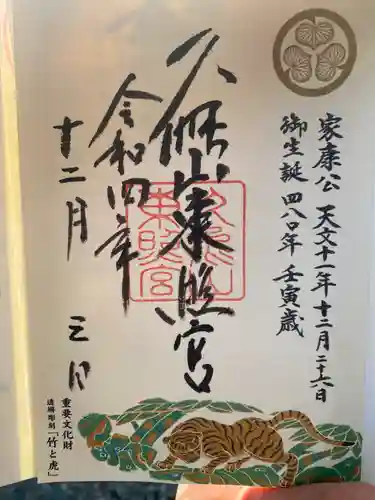 家康公 天文十一年 十二月 二十六日
御生誕 四八〇年 壬寅歳
久能山東照宮
久能山
東照宮
令和四年
十二月 三日
重要文化財
透塀彫刻「竹と虎」